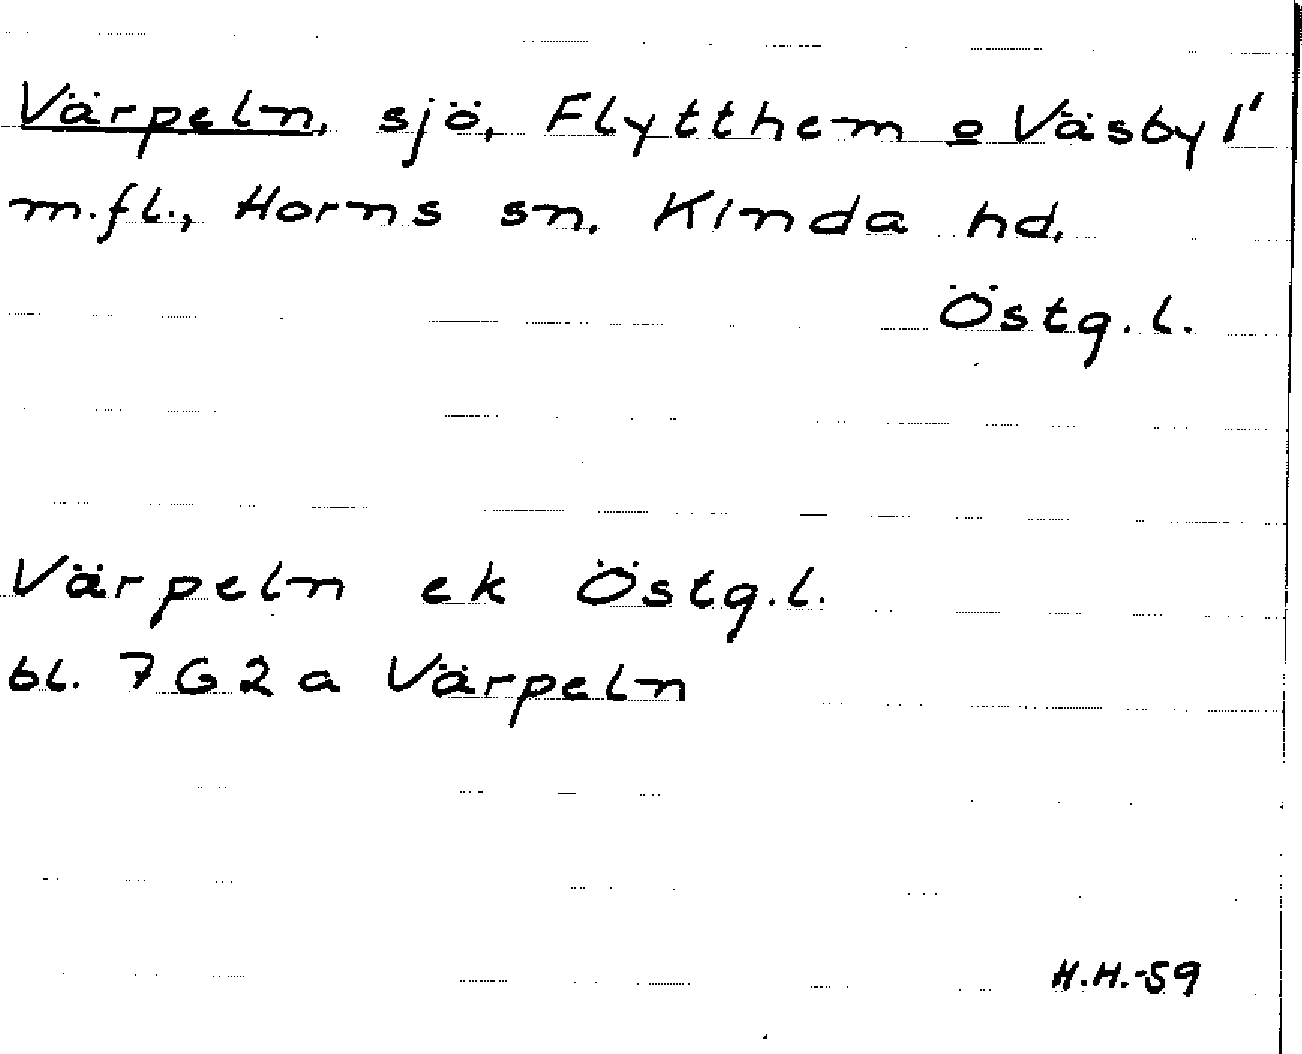 Värpeln, sjö, Flytthem o Väsby 1'
m.fl., Horns sn. Kinda hd.
Östg.l.
Värpeln ek Östg.l.
bl. 7G2a Värpeln
H.H.-59